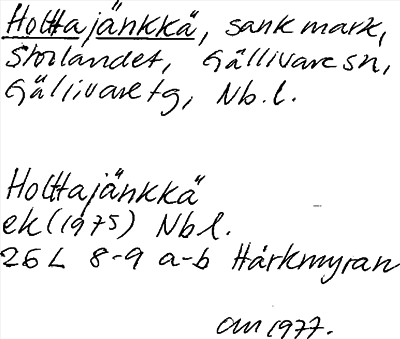 Holttajänkkä, sank mark,
Storlandet, Gällivare sn,
Gällivare tg, Nb.l.
Holttajänkkä
ek (1975) Nb l.
26 L 8-9 a-b Hårkmyran
am 1977.